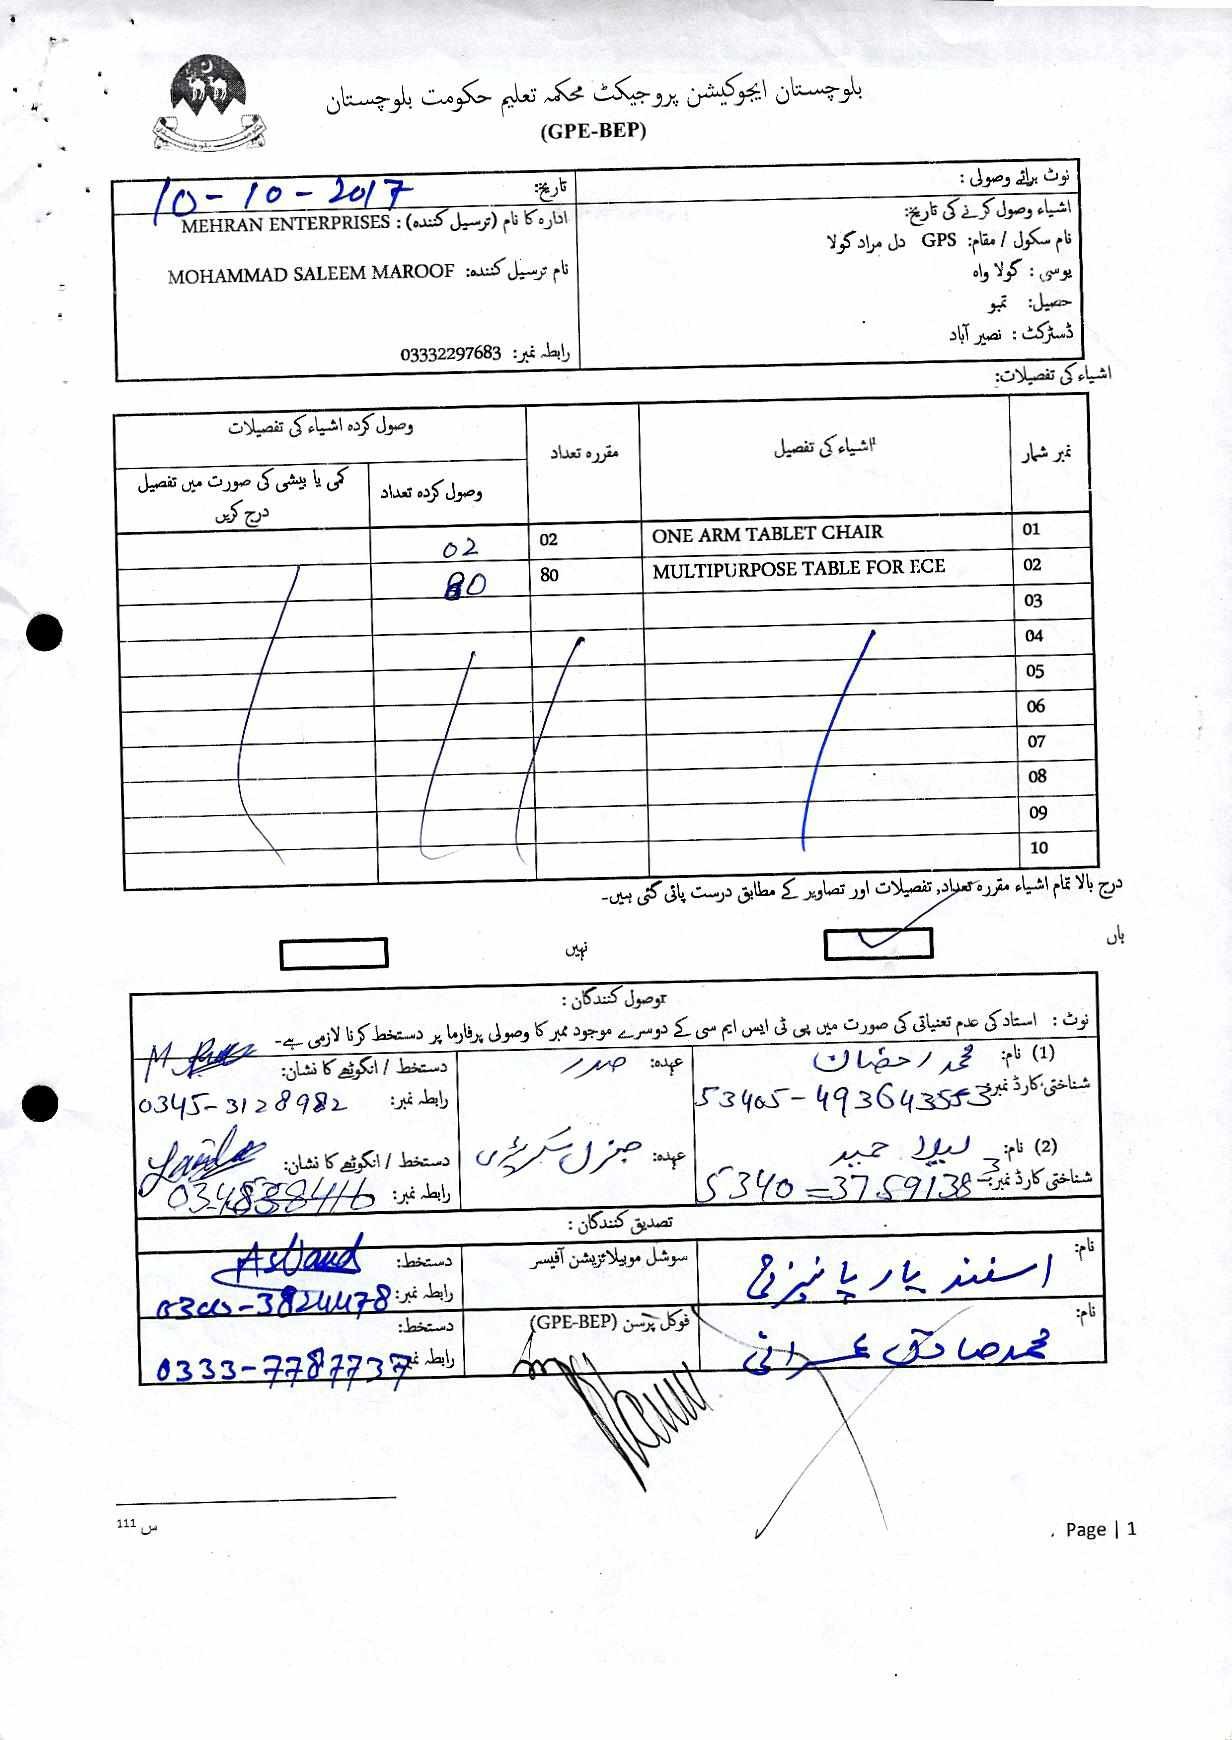 بلوچستان ایجوکیشن پروجیکٹ محکمہ تعلیم حکومت بلوچستان
(GPE-BEP)
نوٹ برائے وصولی :
اشیاء وصول کرنے کی تاریخ:
نام سکول / مقام: GPS دل مراد گولا
یوسی : گولا واہ
حصیل: تمبو
ڈسٹرکٹ : نصیر آباد
تاریخ: 10-10-2017
ادارہ کا نام (ترسیل کنندہ) : MEHRAN ENTERPRISES
نام ترسیل کنندہ: MOHAMMAD SALEEM MAROOF
رابطہ نمبر: 03332297683
اشیاء کی تفصیلات:
نمبر شمار اشیاء کی تفصیل مقررہ تعداد وصول کردہ اشیاء کی تفصیلات
وصول کردہ تعداد کمی یا بیشی کی صورت میں تفصیل درج کریں
01 ONE ARM TABLET CHAIR 02 02
02 MULTIPURPOSE TABLE FOR ECE 80 80
03
04
05
06
07
08
09
10
درج بالا تمام اشیاء مقررہ تعداد, تفصیلات اور تصاویر کے مطابق درست پائی گئی ہیں۔
ہاں نہیں
وصول کنندگان :
نوٹ : استاد کی عدم تعنیاتی کی صورت میں پی ٹی ایس ایم سی کے دوسرے موجود ممبر کا وصولی پرفارما پر دستخط کرنا لازمی ہے۔
(1) نام: محمد رمضان عہدہ: صدر دستخط / انگوٹھے کا نشان:
شناختی کارڈ نمبر: 53405-493643553 رابطہ نمبر: 0345-3128982
(2) نام: لیلا حمید عہدہ: جنرل سیکرٹری دستخط / انگوٹھے کا نشان:
شناختی کارڈ نمبر: رابطہ نمبر:
تصدیق کنندگان :
نام: اسفند یار پانیزئی سوشل موبیلائزیشن آفیسر دستخط:
رابطہ نمبر:
نام: محمد صادق عمرانی فوکل پرسن (GPE-BEP) دستخط:
رابطہ نمبر: 0333-7787737
س 111
Page | 1